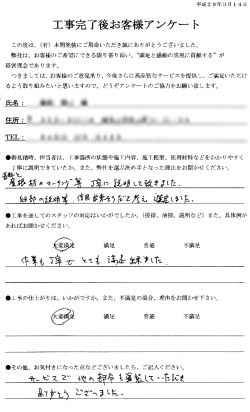 平成29年3月14日
工事完了後お客様アンケート
この度は、(有)本間塗装にご用命いただき誠にありがとうございました。
弊社は、お客様のご希望にできる限り寄り添い、"満足と感動の実現に貢献する"が
経営理念であります。
つきましては、お客様のご意見承り、今後さらに高品質なサービスを提供し、ご満足いただけ
るよう取り組みたいと思いますので、どうぞアンケートのご協力をお願い致します。
氏名:
住所:
TEL:
●御見積時、担当者は、工事箇所の状態や施工内容、施工提案、使用材料などをわかりやすく
丁寧に説明できていたか、また、弊社を選ぶ決め手となった理由をお聞かせください。
屋根材の 等 丁寧に説明して頂きました。
細部の説明等、信用出来そうだと考え 選びました。
●工事を通してのスタッフの対応はいかがでしたか。(挨拶、清掃、説明など)また、具体例が
あればお聞かせください。
大変満足 満足 普通 不満足
作業も丁寧でとても満足出来ました。
●工事の仕上がりは、いかがですか。また、不満足の場合、理由をお聞かせ下さい。
大変満足 満足 普通 不満足
●その他、お気付きになった点などございましたら、ご記入ください。
サービスで他の部分も塗装していただき
ありがとうございました。